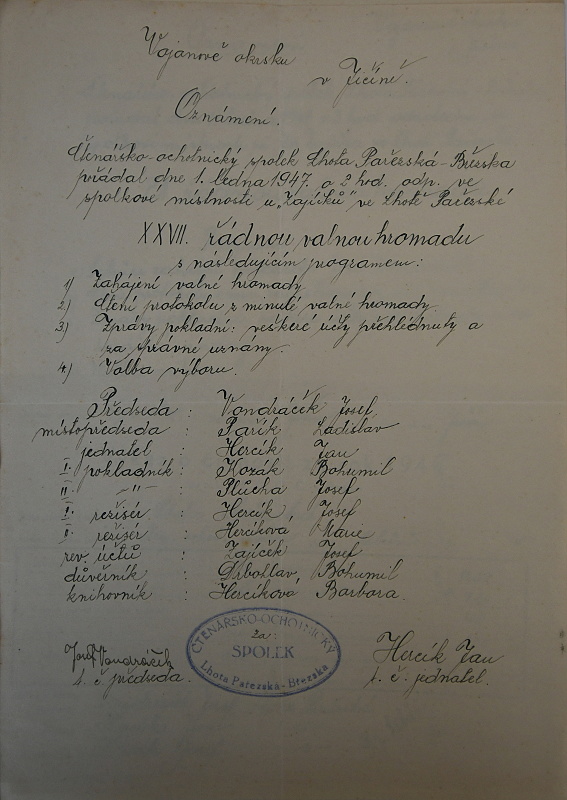 Vojanově okrsku
v Jičíně.
Oznámení.
Čtenářsko-ochotnický spolek Lhota Pařezská-Březska
pořádal dne 1. ledna 1947. o 2 hod. odp. ve
spolkové místnosti u „Zajíčků“ ve Lhotě Pařezské
XXVII. řádnou valnou hromadu
s následujícím programem:
1) Zahájení valné hromady.
2) Čtení protokolu z minulé valné hromady.
3) Zprávy pokladní: veškeré účty přehlédnuty a
za správné uznány.
4) Volba výboru.
Předseda : Vondráček Josef.
místopředseda : Pařík Ladislav
jednatel : Hercík Jan
I. pokladník : Kozák Bohumil
II. -„- : Plucha Josef
I. režisér : Hercík Josef
II. režisér : Hercíková Marie
rev. účtů : Zajíček Josef
důvěrník : Drbohlav Bohumil
knihovník : Hercíková Barbora.
ČTENÁŘSKO-OCHOTNICKÝ
za:
SPOLEK
Lhota Pařezská-Březska
Josef Vondráček
t. č. předseda.
Hercík Jan
t. č. jednatel.